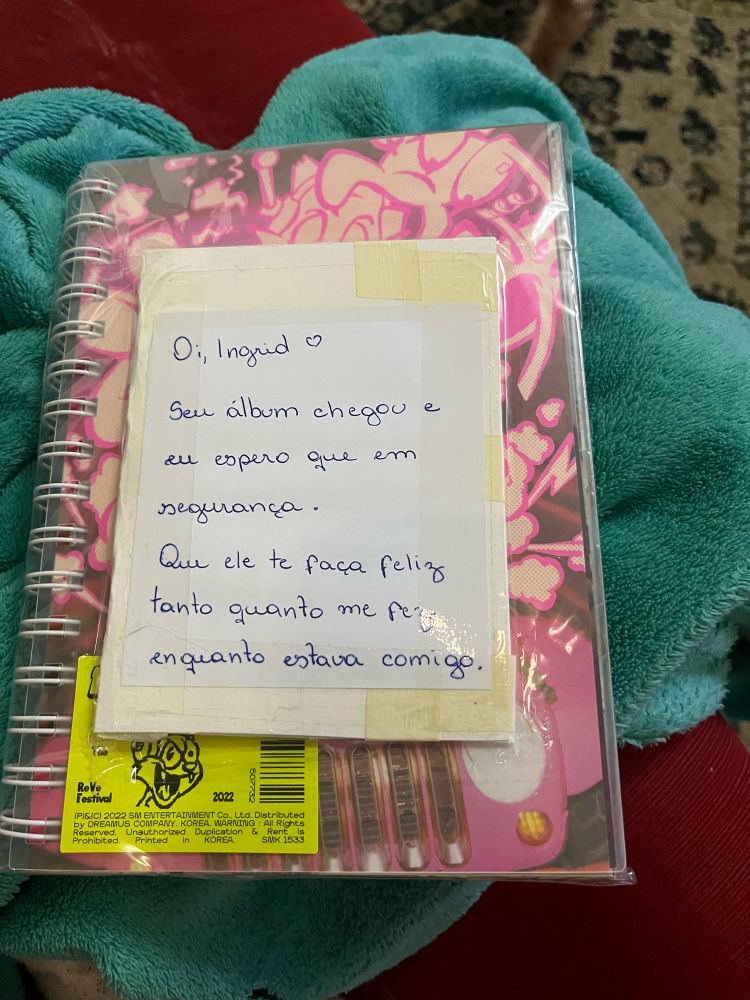 Oi, Ingrid ♡
Seu álbum chegou e
eu espero que em
segurança.
Que ele te faça feliz
tanto quanto me fez
enquanto estava comigo.
The
ReVe
Festival
2022
5077732
(P)&(C) 2022 SM ENTERTAINMENT Co., Ltd. Distributed
by DREAMUS COMPANY. KOREA. WARNING : All Rights
Reserved. Unauthorized Duplication & Rent is
Prohibited. Printed in KOREA. SMK 1533